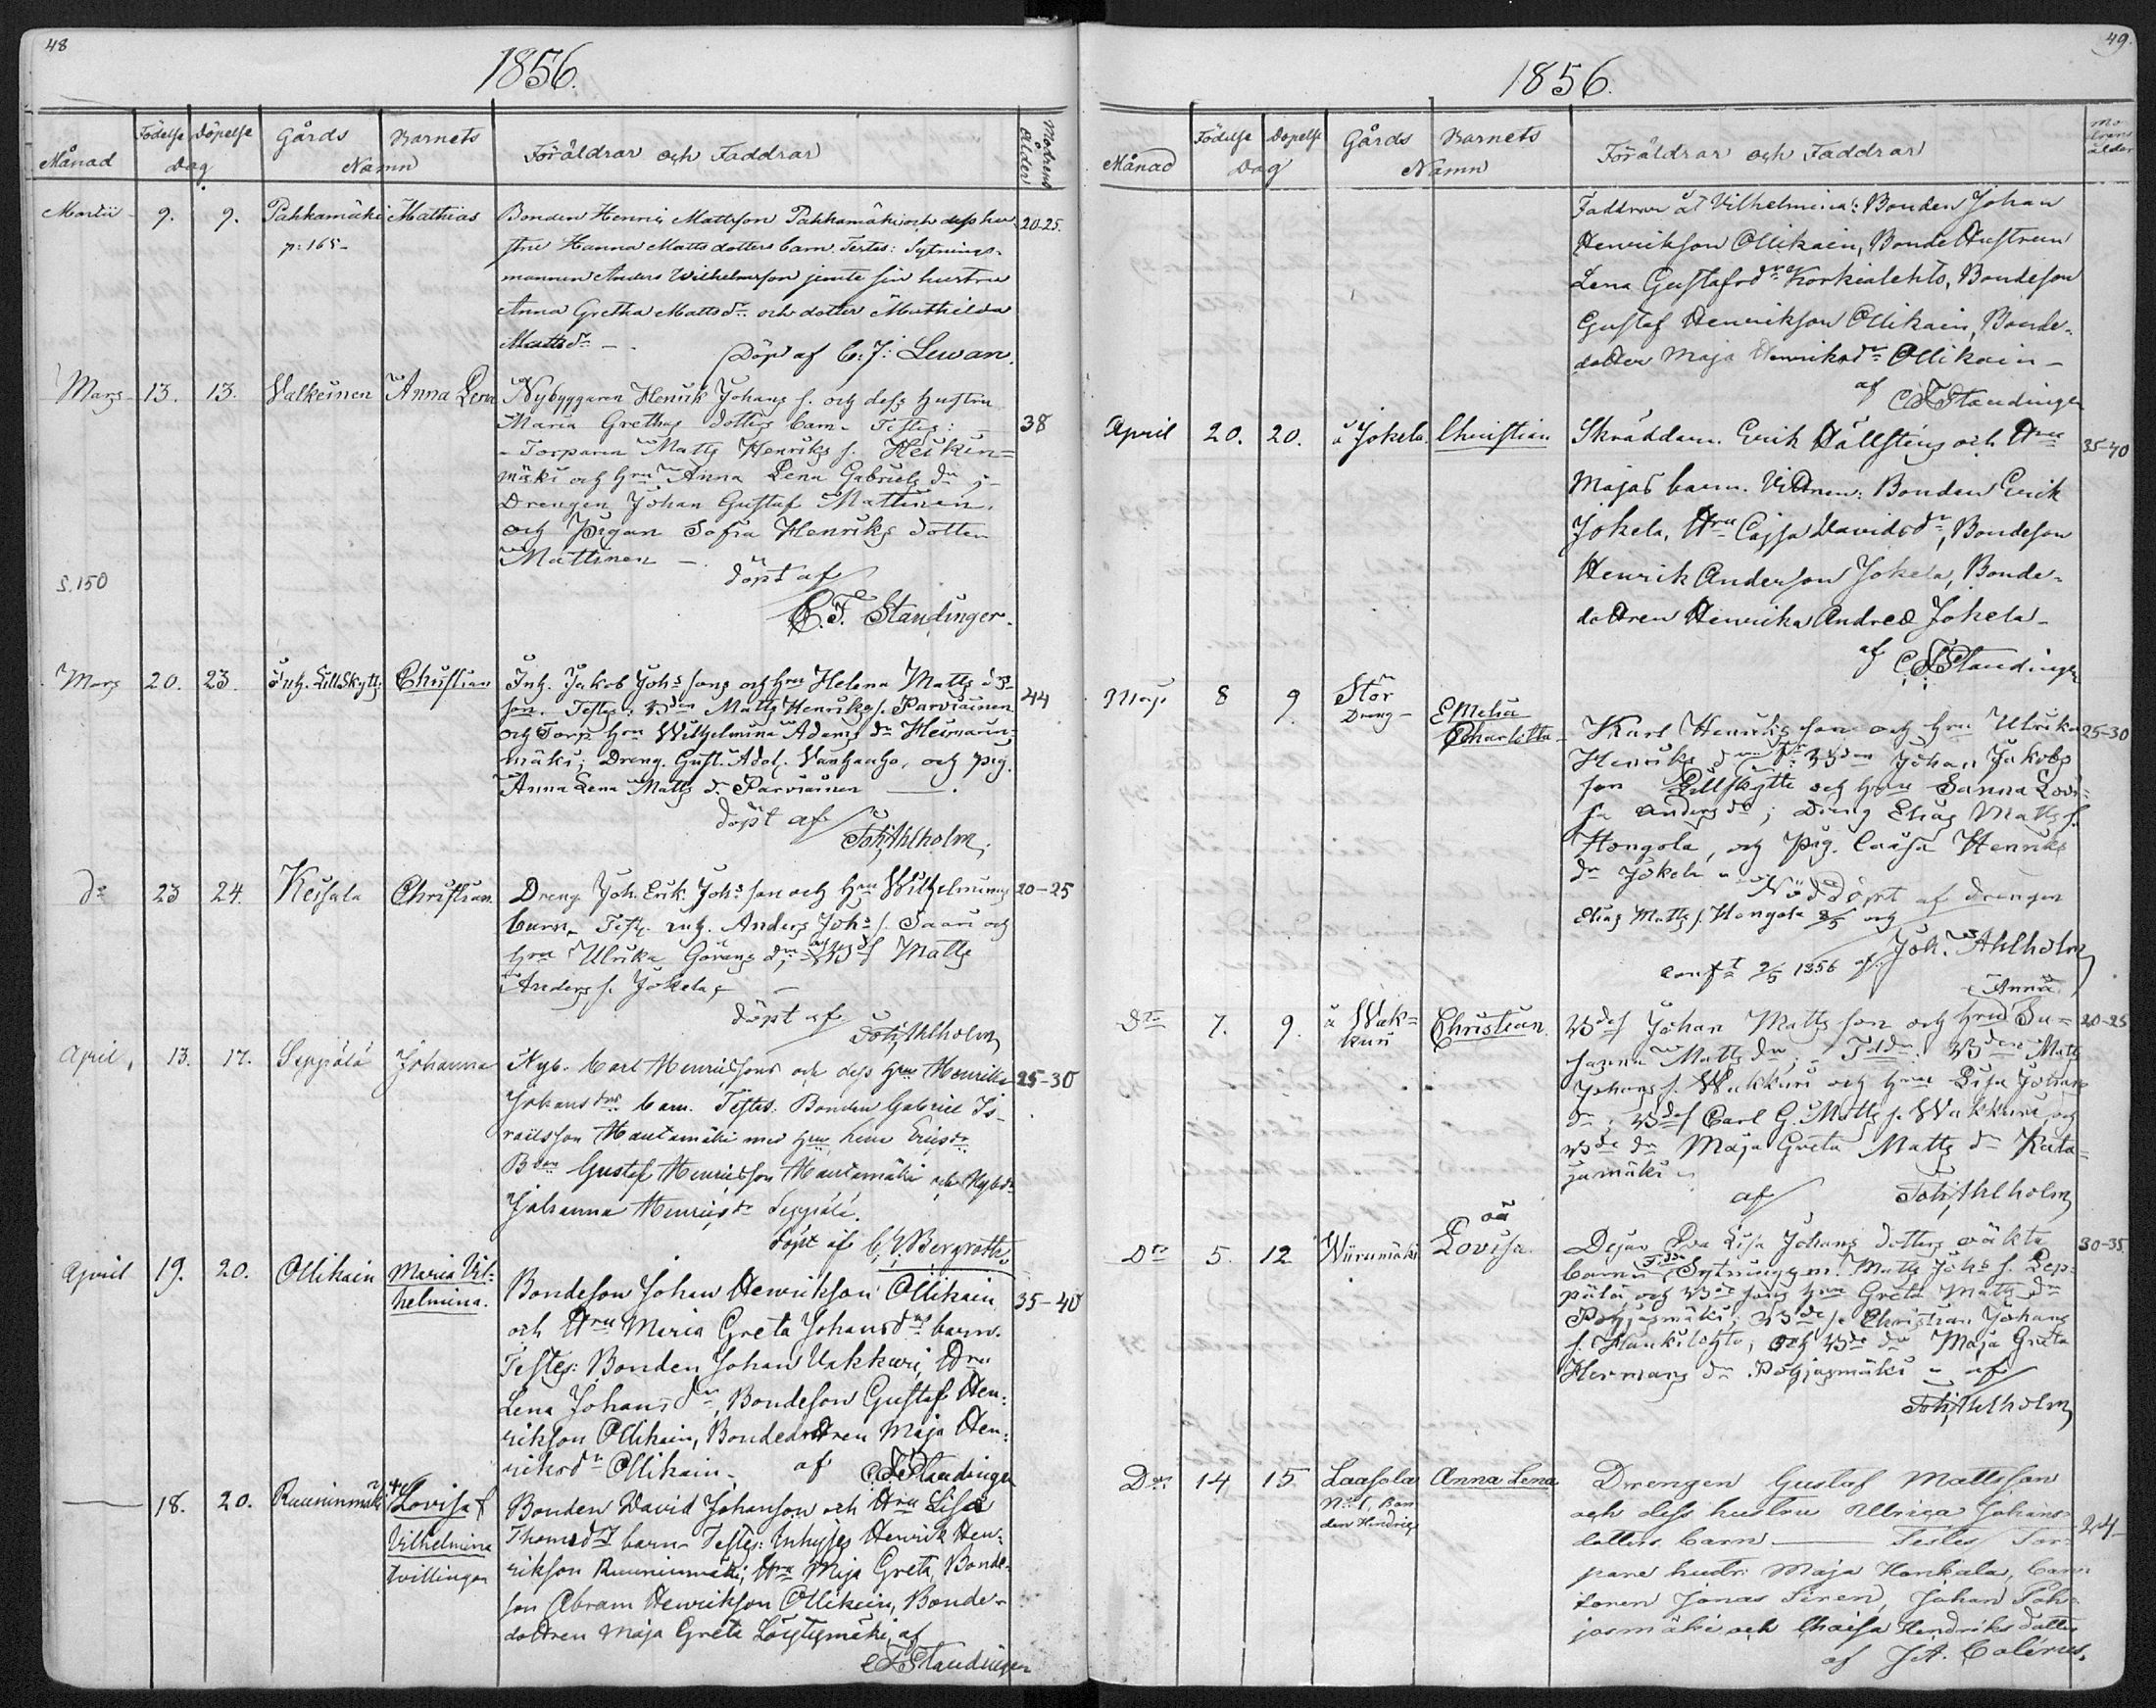 48
1856.
Månad Födelse Döpelse Dag Gårds Barnets Namn Föräldrar och Faddrar Modrens ålder
Martii 9. 9. Pahkamäki Mathias Bonden Henric Mattsson Pahkamäki och dess hu- 20-25.
p: 165- stru Hanna Matts dotters barn. Testes: Sytnings-
mannen Anders Wilhelmsson jemte sin hustru
Anna Gretha Mattsdr och dotter Mathilda
Mattsdr —
Döp af C. J: Lewan.
Mars 13. 13. Valkeinen Anna Lena Nybyggaren Henrik Johans s. och dess hustru
Maria Grethas dotters barn. Testes: 38
Torparen Matts Henriks s. Heikin=
mäki och Hru Anna Lena Gabriels dr ;-
Drengen Johan Gustaf Mattinen,
och Pigan Sofia Henriks dotter
Mattinen —
S. 150
döpt af
C. F. Standinger.
Mars 20. 23. Inh. Lillskytts Christian Inh. Jakob Johs sons och Hru Helena Matts drs 44
son. Testes: Bden Matts Henriks s. Parviainen
och Torp. Hru Wilhelmina Adams dr
mäki; Dreng. Gust. Adol. Vanhaaho, och pig.
Anna Lena Matts dr Parviainen —.
döpt af
Joh. Ahlholm.
do 23 24. Keisala Christian. Dreng Joh. Erik Johs son och Hru Wilhelminas 20-25
barn. Test. inh. Anders Johs s. Saari och
Hru Ulrika Görans dr; och Bds Matts
Anders s. Jokela —
döpt af
Joh. Ahlholm
April, 13. 17. Seppälä Johanna Nyb. Carl Henricssons och dess Hru Henrika 25-30
Johansdrs barn. Testes: Bonden Gabriel Is-
raelsson Hautamäki med Hru Lena Ericsdr
Bden Gustaf Henricsson Hautamäki och Nybdr
Johanna Henricsdr Seppälä.
döpt af C. J. Bergroth
April 19. 20. Ollikain Maria Vil= Bondeson Johan Henrikson Ollikain 35-40
helmina. och Hru Maria Greta Johansdrs barn.
Testes: Bonden Johan Vakkuri, Hru
Lena Johansdr, Bondeson Gustaf Hen=
rikson Ollikain, Bondedottren Maja Hen=
riksdr Ollikain. af C F Standinger
— 18. 20. Ruuninmäki Lovisa & Bonden David Johanson och Hru Lisa
Vilhelmina Thomsdrs barn. Testes: Inhyses Henrik Hen=
tvillingar rikson Ruuninmäki, Hru Maja Greta, Bonde-
son Abram Henrikson Ollikain, Bonde-
dottren Maja Greta Löytysmäki, af
C F Standinger
49.
1856.
Månad Födelse Döpelse Dag Gårds Barnets Namn Föräldrar och Faddrar Modrens ålder
Faddrar åt Vilhelmina: Bonden Johan
Henrikson Ollikain, BondeHustrun
Lena Gustafsdr Korkialehto, Bondeson
Gustaf Henrikson Ollikain, Bonde-
dotter Maja Henriksdr Ollikain —
af C F Standinger
April 20. 20. å Jokela Christian Skräddaren Erik Hällsténs och Hru 35-40
Majas barn. Vittnen: Bonden Erik
Jokela, Hru Cajsa Davidsdr, Bondeson
Henrik Anderson Jokela, Bonde-
dottren Henrika Andred Jokela —
af C F Standinger
Maji 8 9. Stor Emelia
Dreng — Charlotta Karl Henriks son och Hru Ulrika 25-30
Henriks dr Bden Johan Jakobs
son Lillskytte och Hru Sanna Lovi-
sa Anders dr; Dreng Elias Matts s.
Hongola, och Pig. Caisa Henriks
dr Jokela
Nöddöpt af drengen
Elias Matts s. Hongola 8/5 och
conft 9/5 1856 af Joh. Ahlholm
Anna
Do 7. 9. å Wak= Christian. Bds Johan Matts son och Hru Su= 20-25
kuri sanna Matts dr; Fddr: Bden Matts
Johans s. Wakkuri och Hru Lisa Johans
dr; Bds Carl G. Matts s. Wakkuri och
Bde dr Maja Greta Matts dr Kata=
jamäki
af Joh. Ahlholm
oä
Do 5. 12. Niirumäki Lovisa. Dejan Eva Lisa Johans dotters oäkta 30-35.
barn. Fddr Sytningsm. Matts Johs s. Sep-
pälä, och Bde sons Hru Greta Matts dr
Pohjasmäki; Bde s. Christian Johans
s. Haukilehto, och Bde dr Maja Greta
Hermans dr Pohjasmäki — af
Joh. Ahlholm
Do 14 15 Laasola Anna Lena Drengen Gustaf Mattsson
No 1, Bon och dess hustru Ulrica Johans-
den Hindric dotters barn — Testes Tor- 24
pare hustr: Maja Honkala, Can-
toren Jonas Siren, Johan Poh-
jasmäki och Chaisa Hendriks dotter
af J. A. Calenius.